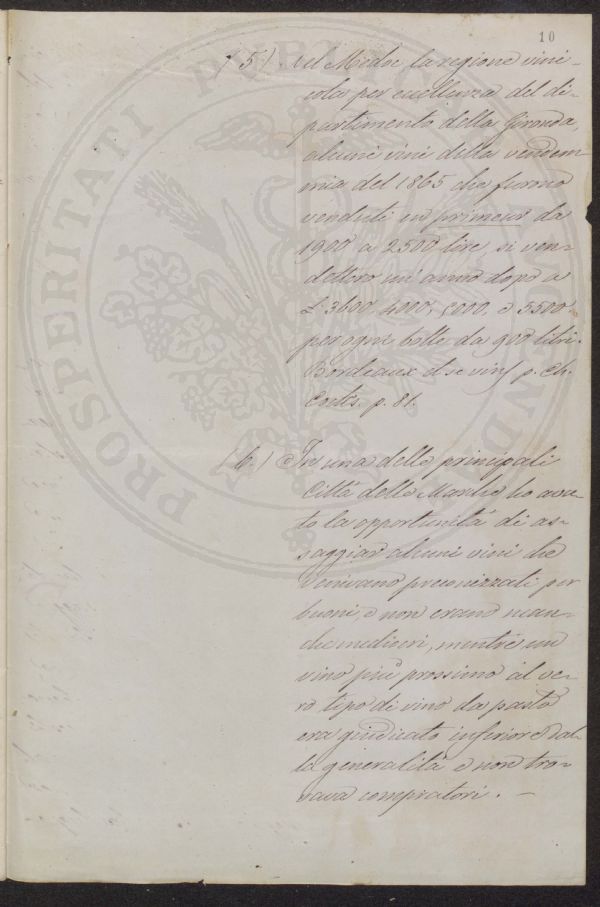 10
(5) Nel Medoc la regione vini-
cola per eccellenza del di-
partimento della Gironda,
alcuni vini della vendem-
mia del 1865 che furono
venduti en primeur da
1900 a 2500 lire si ven-
dettero un'anno dopo a
£ 3600, 4000, 5000, e 5500
per ogni botte da 900 litri.
Bordeaux et se vins p. Ch.
Cocks. p. 81.
(6.) In una delle principali
Città delle Marche ho avu-
to la opportunità di as-
saggiar alcuni vini che
venivano preconizzati per
buoni, e non erano nean-
che mediocri, mentre un
vino più prossimo al ve-
ro tipo di vino da pasto
era giudicato inferiore dal-
la generalità e non tro-
vava compratori. —
PROSPERITATI PUBLICAE AUGENDAE